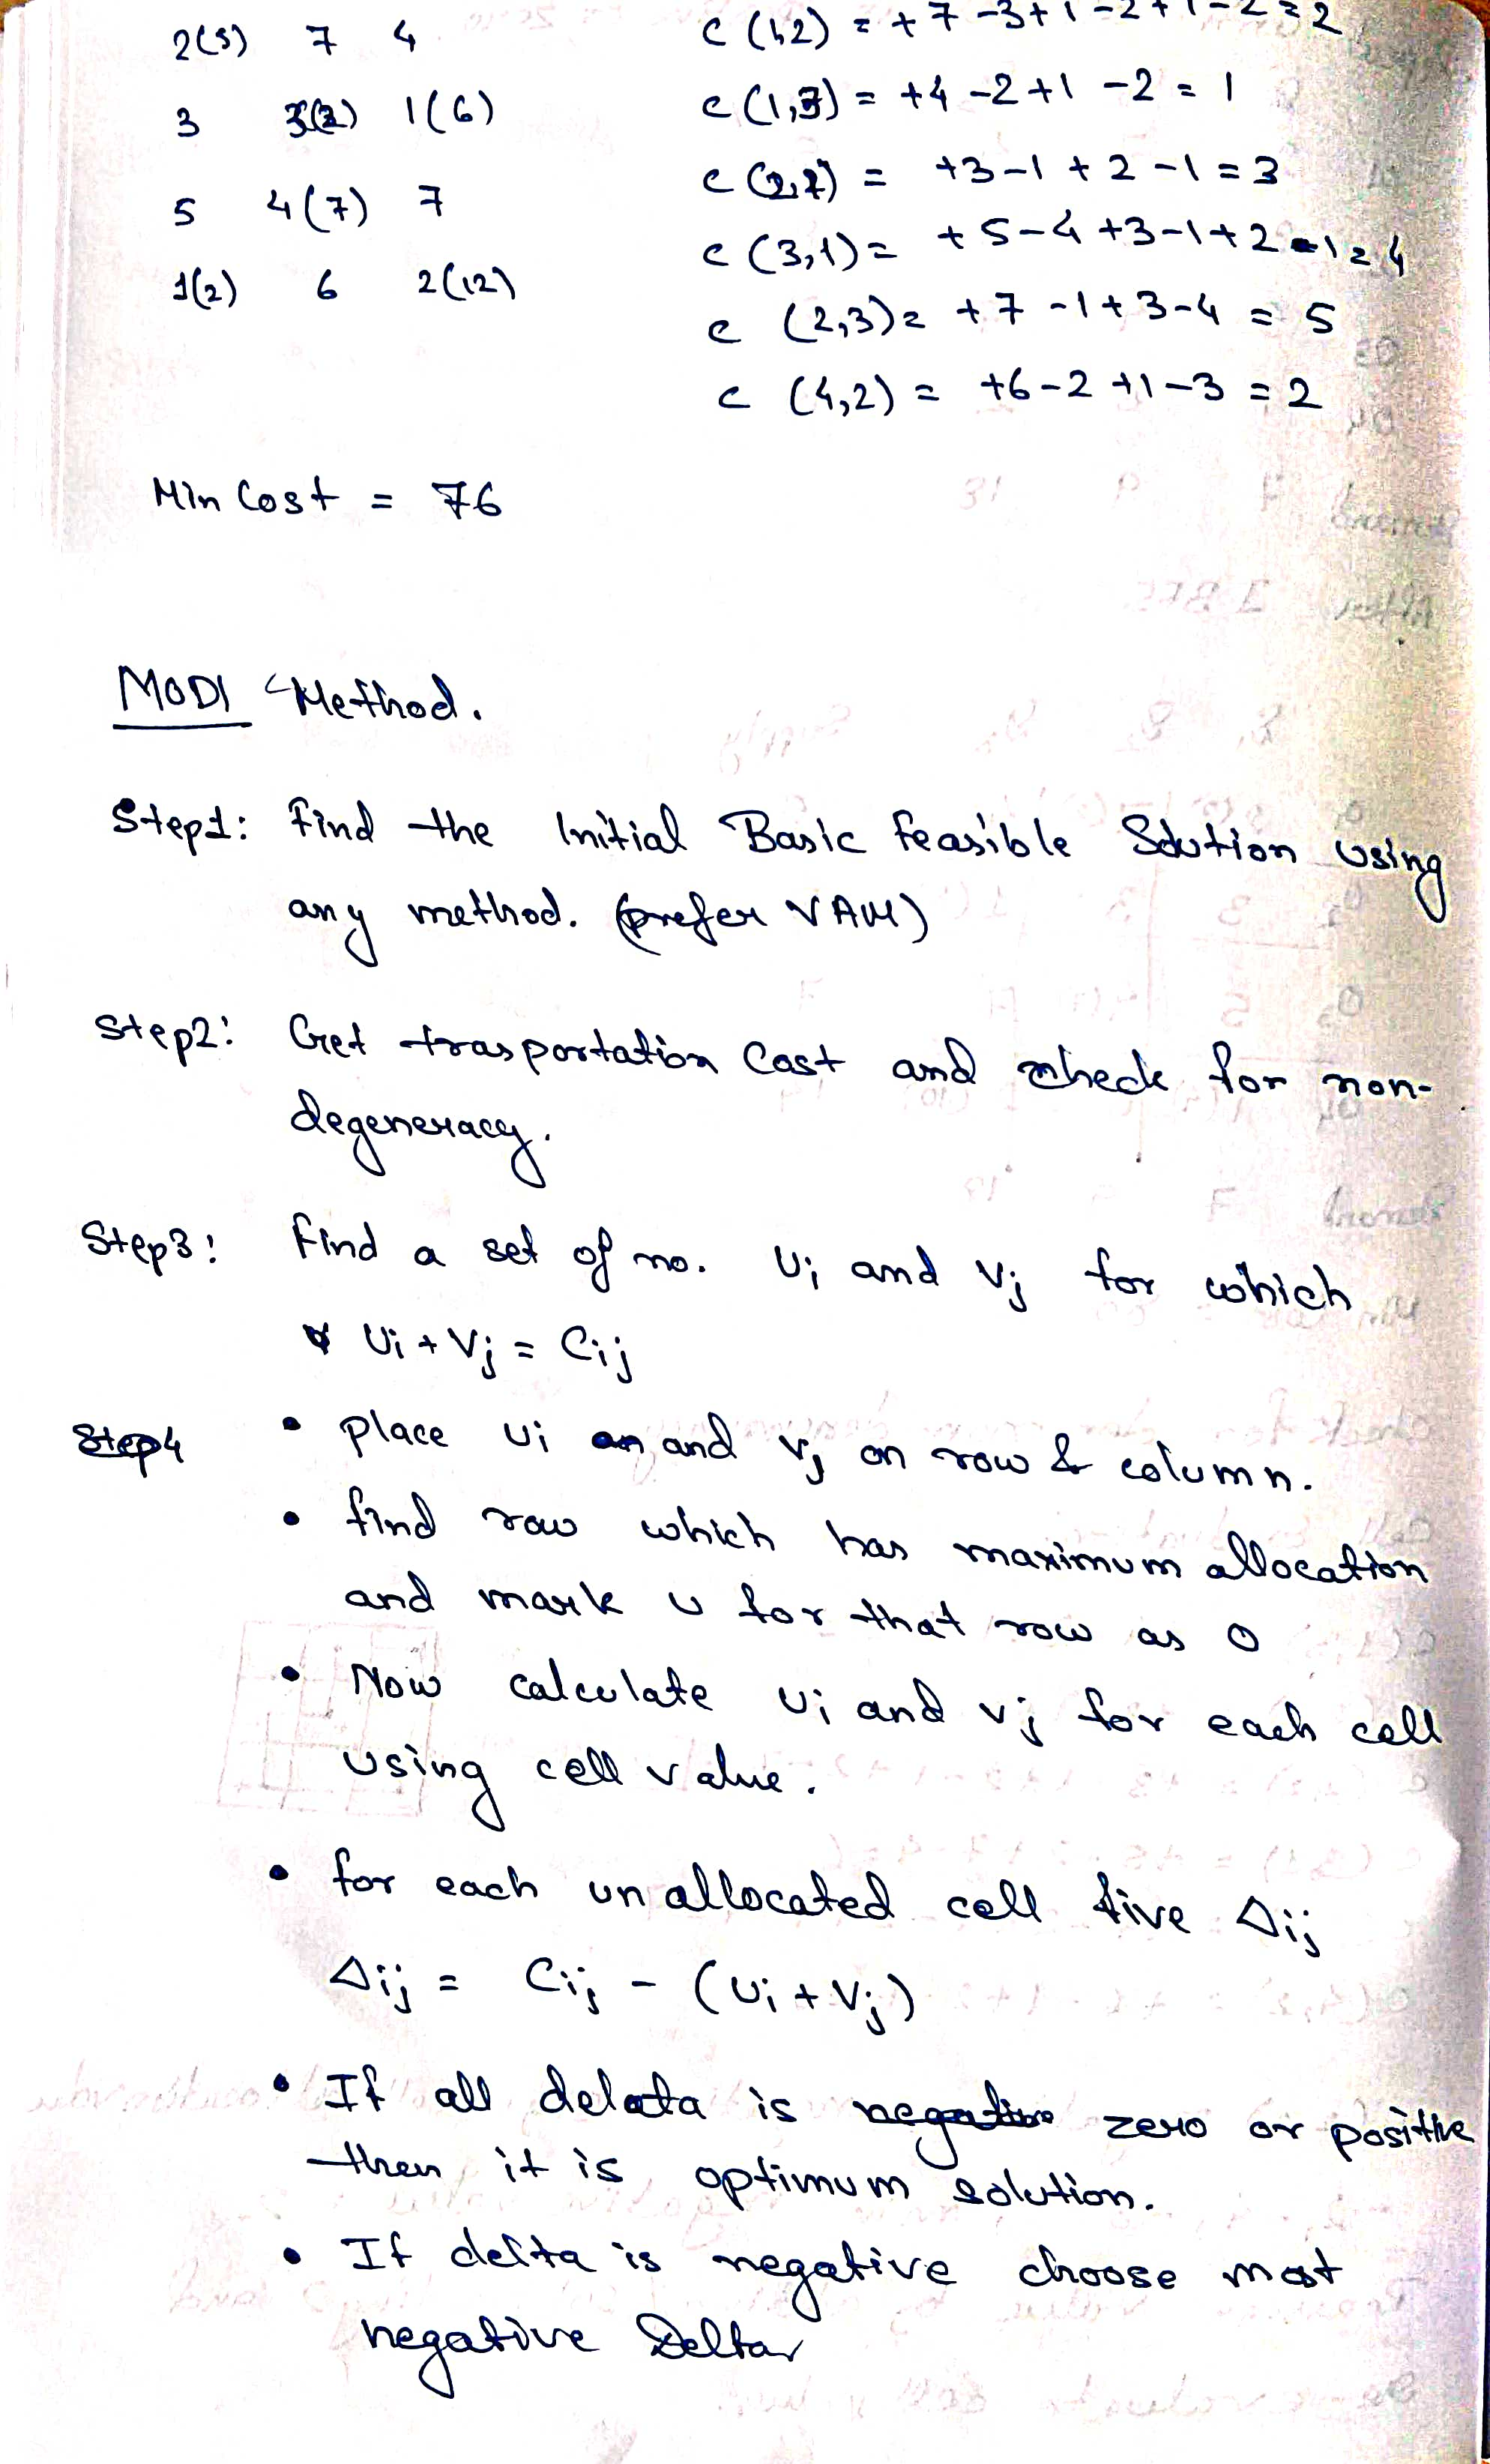 2(5) 7 4
3 3(2) 1(6)
5 4(7) 7
1(2) 6 2(12)
c (1,2) = +7-3+1-2+1-2=2
c (1,3) = +4-2+1-2 = 1
c (2,1) = +3-1+2-1=3
c (3,1)= +5-4+3-1+2-1=4
c (2,3)= +7-1+3-4 = 5
c (4,2) = +6-2+1-3 = 2
Min Cost = 76
MODI Method.
Step1: Find the Initial Basic Feasible Solution using
any method. (prefer VAM)
Step2: Get trasportation Cost and check for non-
degeneracy.
Step3: Find a set of no. Ui and Vj for which
Ui + Vj = Cij
Step4 • place ui and vj on row & column.
• find row which has maximum allocation
and mark u for that row as 0
• Now calculate ui and vj for each cell
using cell value.
• for each unallocated cell five Δij
Δij = Cij - (Ui + Vj)
• If all delata is negative zero or positive
then it is optimum solution.
• If delta is negative choose most
negative Delta